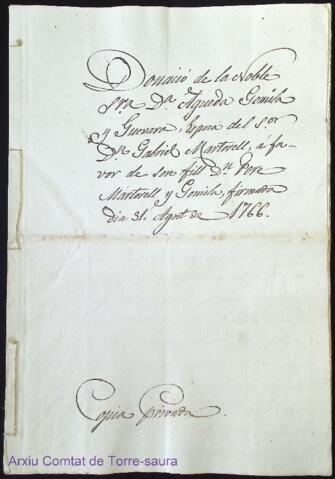 Donació de la Noble
Sra. Da. Agueda Gomila
y Guevara, Esposa del Sor.
Dn. Gabriel Martorell, á fa-
vor de son fill Dn. Pere
Martorell y Gomila, formada
dia 31. Agost de 1766.
Copia Privada.
Arxiu Comtat de Torre-saura